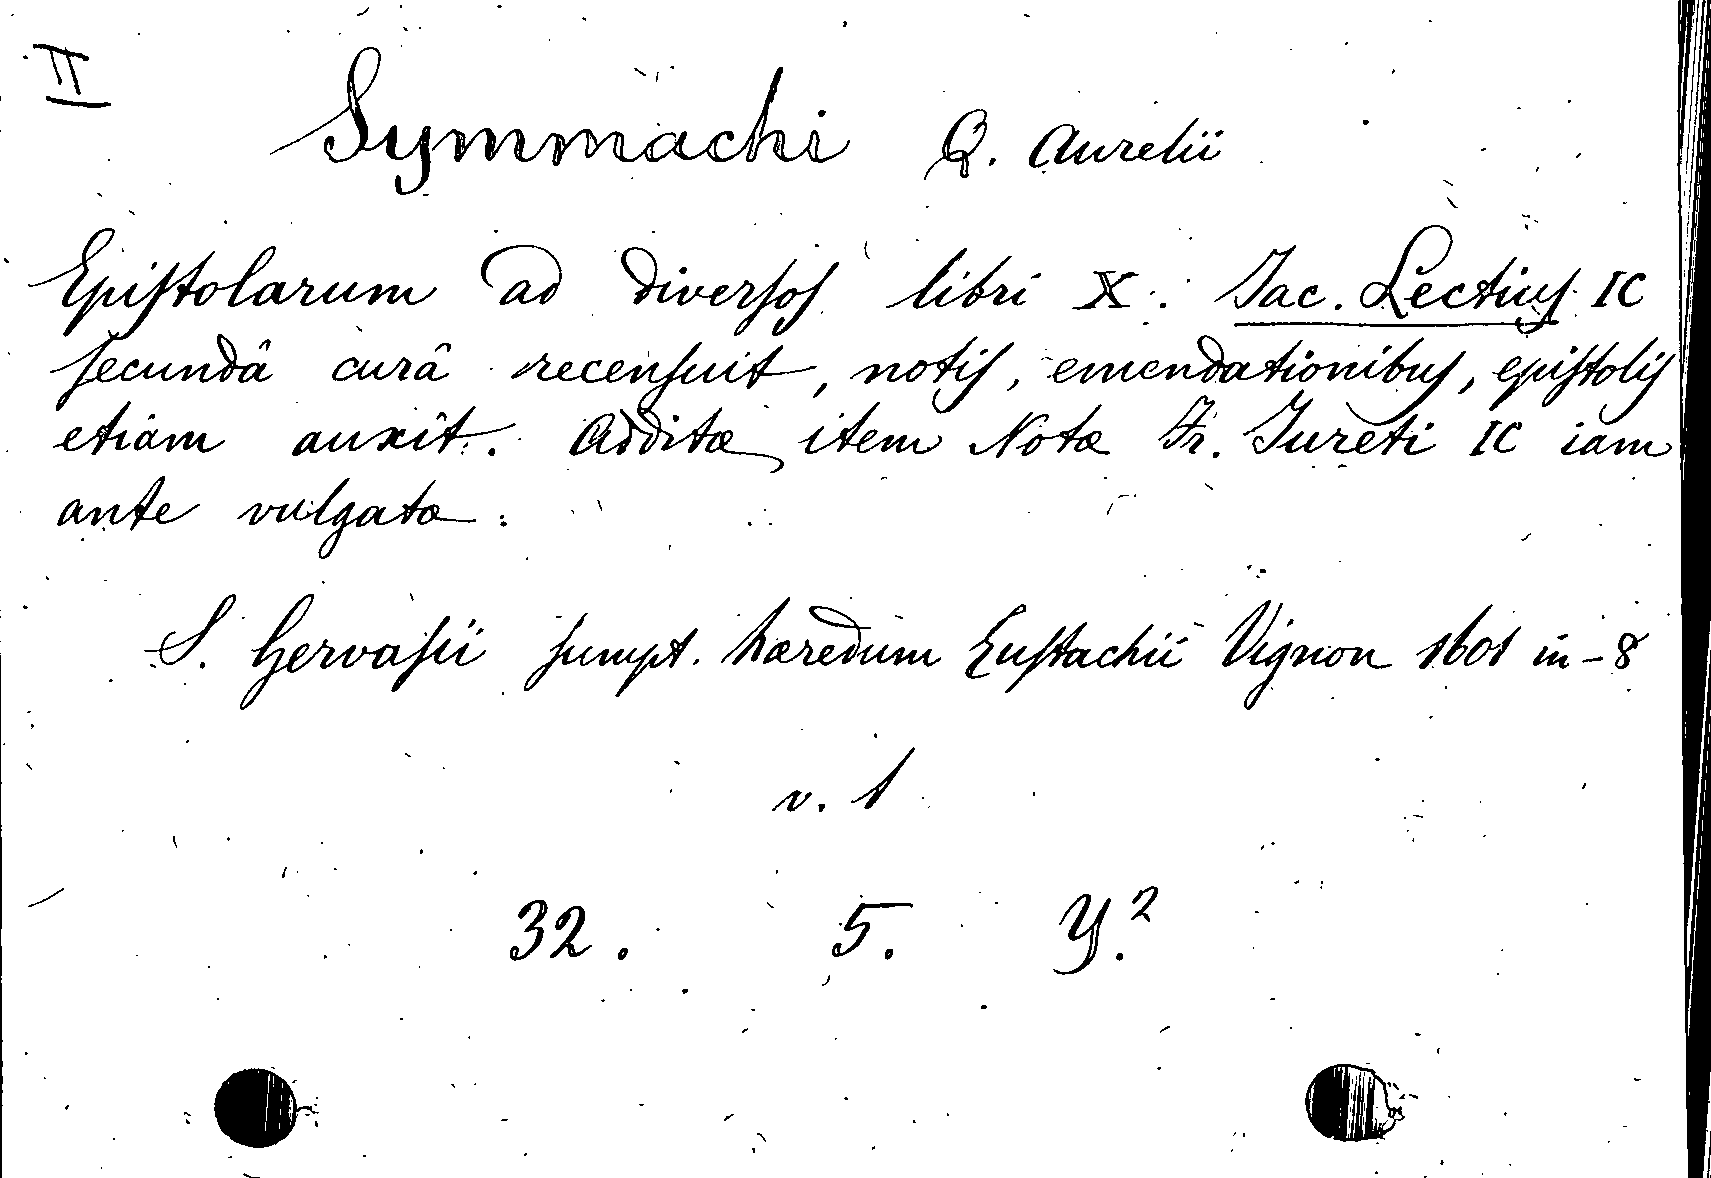 II
Symmachi Q. Aurelii
Epiſtolarum ad diverſoſ libri X. Jac. Lectiuſ IC
ſecundâ curâ recenſuit, notiſ, emendationibuſ, epiſtoliſ
etiam auxit. Additæ item Notæ Fr. Jureti IC iam
ante vulgatæ.
S. Gervaſii ſumpt. hæredum Euſtachii Vignon 1601 in-8
v. 1
32. 5. Y.²